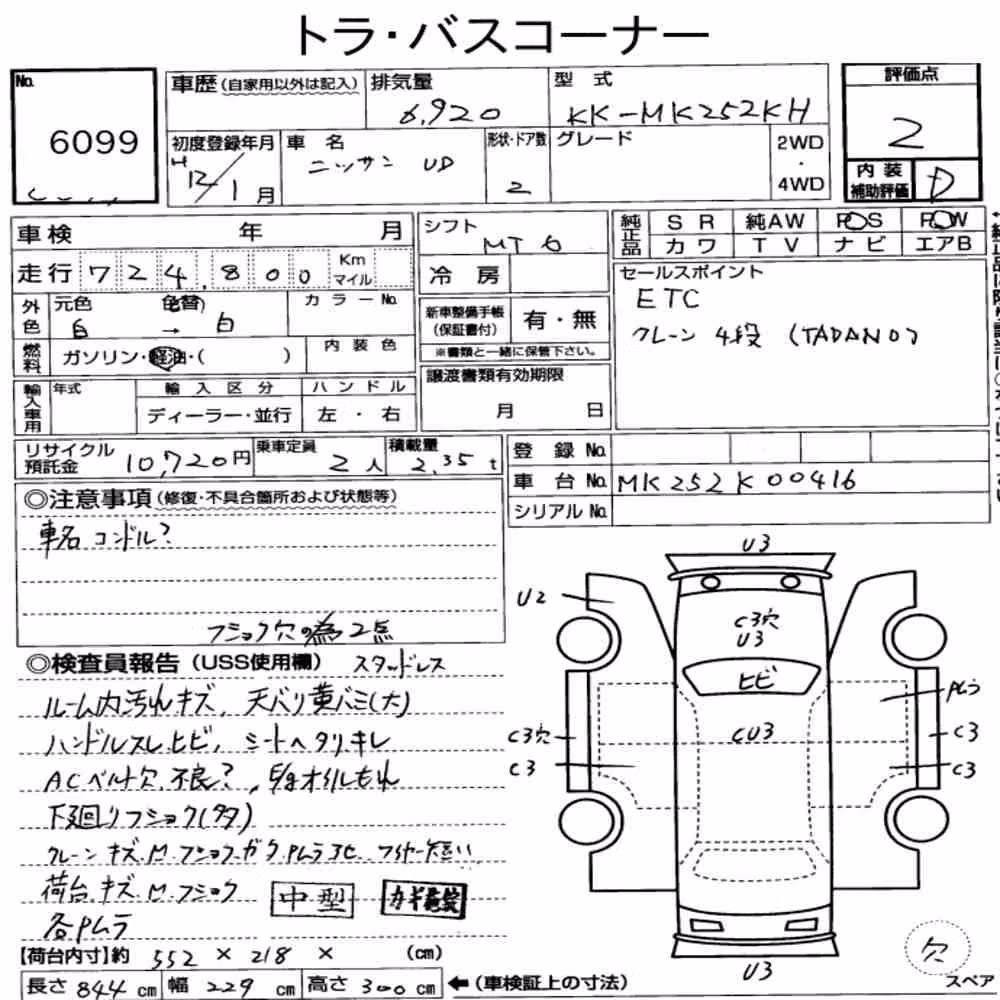 トラ・バスコーナー
No. 6099
車歴 (自家用以外は記入) 排気量 6,920 型式 KK-MK252KH
評価点 2
初度登録年月 H12/1月 車名 ニッサン UD 形状・ドア数 2 グレード 2WD・4WD
内装補助評価 D
車検 年 月
シフト MT 6
純正品 SR 純AW PS PW
カワ TV ナビ エアB
走行 724,800 Km マイル
冷房
セールスポイント
ETC
クレーン 4段 (TADANO)
外色 元色 白 → 色替 白 カラーNo.
新車整備手帳 (保証書付) 有・無
※書類と一緒に保管下さい。
燃料 ガソリン・軽油・( ) 内装色
譲渡書類有効期限
月 日
輸入車用 年式 輸入区分 ハンドル
ディーラー・並行 左・右
リサイクル預託金 10,720円 乗車定員 2人 積載量 2.35t
登録No.
車台No. MK252K00416
シリアルNo.
◎注意事項 (修復・不具合箇所および状態等)
車名 コンドル?
フショク穴の為2点
◎検査員報告 (USS使用欄) スタッドレス
ルーム内汚れキズ、天バリ黄バミ(大)
ハンドルスレ.ヒビ、シートヘタリ.キレ
ACベルト欠.不良?、オイルもれ
下廻りフショク(多)
クレーン キズ.M.フショク.ガタ.PMラ3ヒ ワイヤー短い
荷台.キズ.M.フショク
各PMラ
中型
【荷台内寸】約 552 × 218 × (cm)
長さ 844 cm 幅 229 cm 高さ 300 cm ←(車検証上の寸法)
U3
U2
C3穴
U3
ヒビ
PMラ
C3穴
CU3
C3
C3
C3
U3
欠
スペア